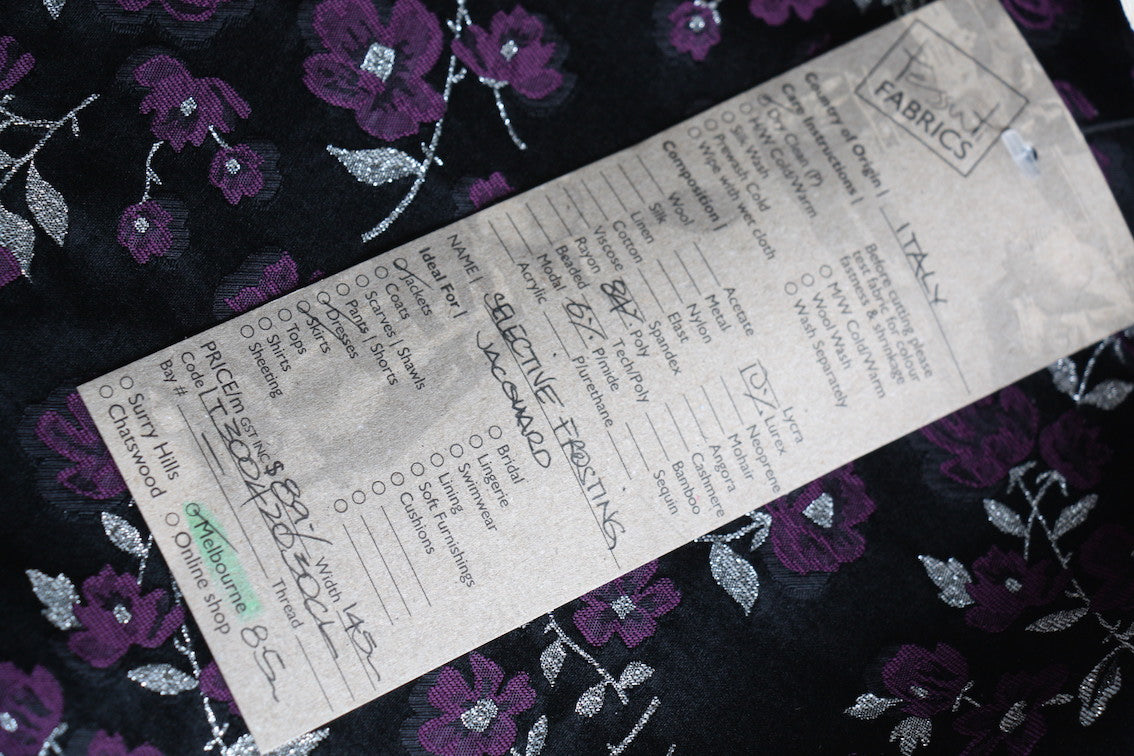 Tessuti
FABRICS
Country of Origin | ITALY
Care Instructions |
Dry Clean (P)
M/W Cold/Warm
Silk Wash
Prewash Cold
Wipe with wer cloth
Before cutting please
test fabric for colour
fastness & shrinkage
M/W Cold/Warm
Wool Wash
Wash Separately
Composition |
Wool
Silk
Linen
Cotton
Viscose
Rayon
Beaded
Modal
Acrylic
Acetate
Metal
Nylon
Elast
Spandex
84% Poly
Tech/Poly
6% P/mide
P/urethane
Lycra
10% Lurex
Neoprene
Mohair
Angora
Cashmere
Bamboo
Sequin
NAME | SELECTIVE FROSTING
JACQUARD
Ideal For |
Jackets
Coats
Scarves | Shawls
Pants | Shorts
Dresses
Skirts
Tops
Shirts
Sheeting
Bridal
Lingerie
Swimwear
Lining
Soft Furnishings
Cushions
PRICE/m GST INC $ 89.- Width 145
Code |
Bay #
Thread
Surry Hills
Chatswood
Melbourne 8.5m
Online shop